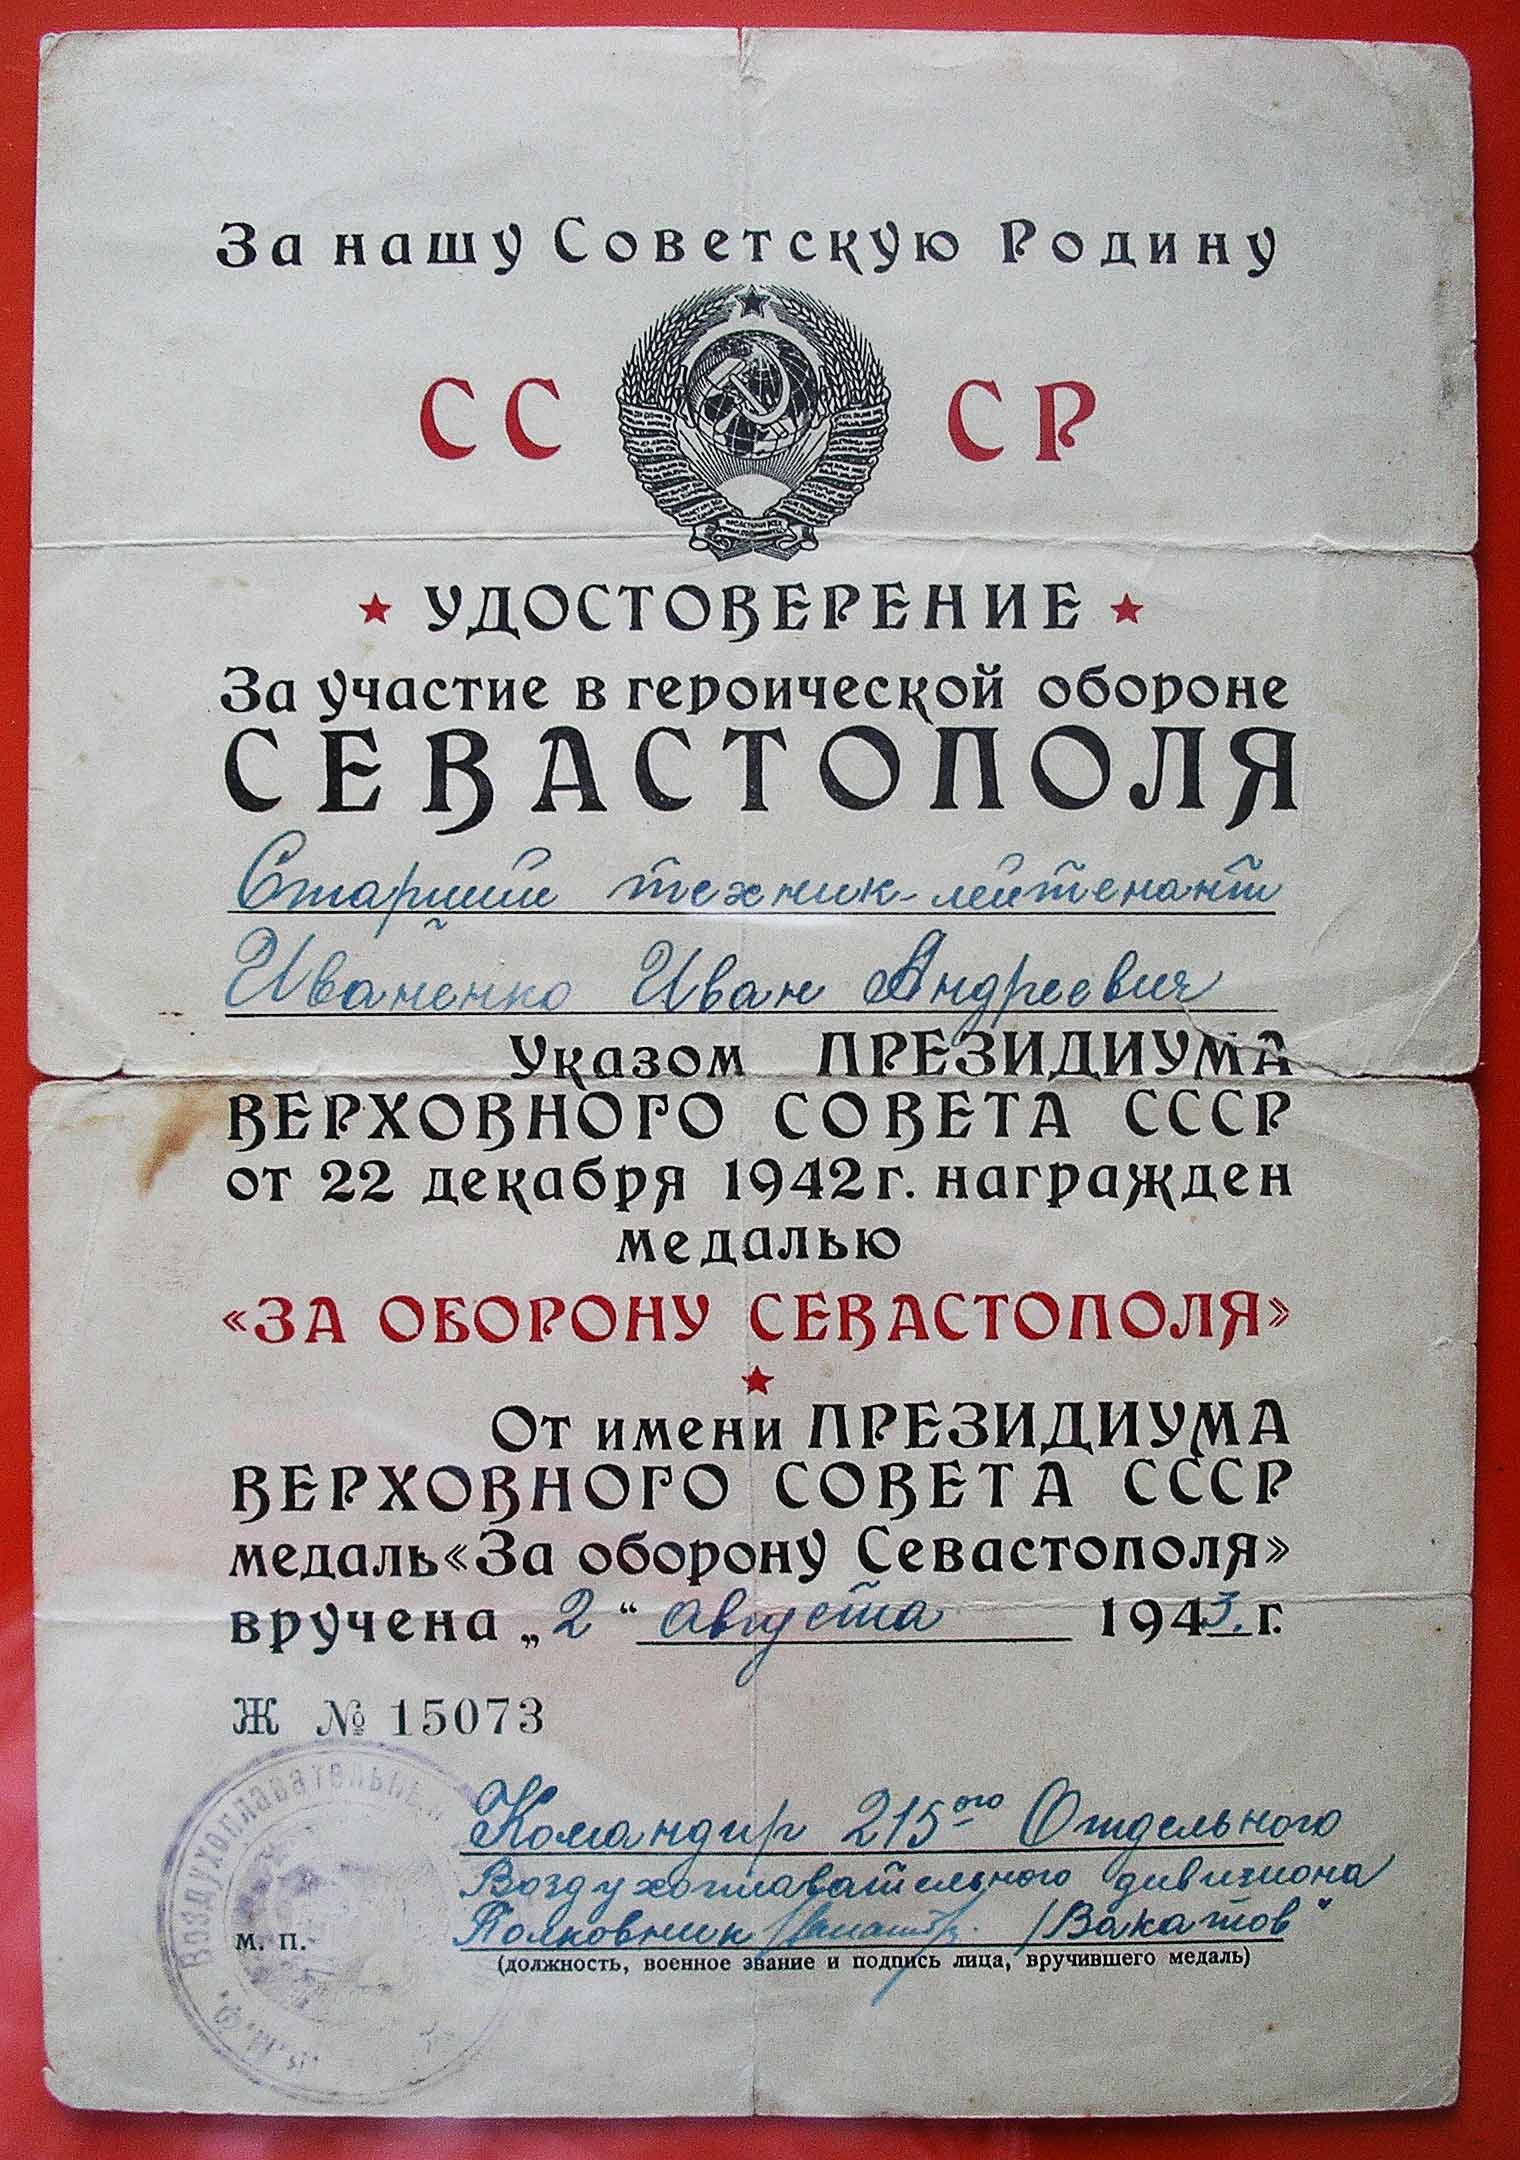 За нашу Советскую Родину
СС СР
УДОСТОВЕРЕНИЕ
За участие в героической обороне
СЕВАСТОПОЛЯ
Старший техник-лейтенант
Иваненко Иван Андреевич
Указом ПРЕЗИДИУМА
ВЕРХОВНОГО СОВЕТА СССР
от 22 декабря 1942 г. награжден
медалью
«ЗА ОБОРОНУ СЕВАСТОПОЛЯ»
От имени ПРЕЗИДИУМА
ВЕРХОВНОГО СОВЕТА СССР
медаль «За оборону Севастополя»
вручена „2“ августа 1943. г.
Ж № 15073
Командир 215-ого Отдельного
Воздухоплавательного дивизиона
Полковник /Вакатов
м. п.
(должность, военное звание и подпись лица, вручившего медаль)